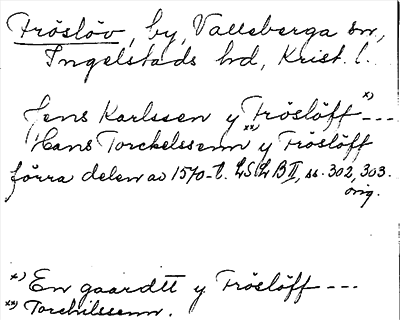 Fröslöv, by, Vallsberga sn,
Ingelstads hd, Krist. l.
Jens Karlssen y Fröslöff x) ---
Hans Torckelssenn xx) y Fröslöff
förra delen av 1570-t. LSLB II, ss. 302, 303.
orig.
x) En gaardtt y Fröslöff ---
xx) Torchilssenn.